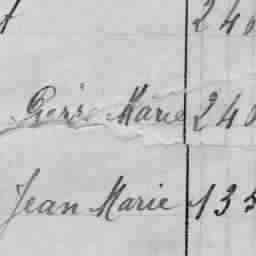 24
Pierre Marie 24
Jean Marie 135